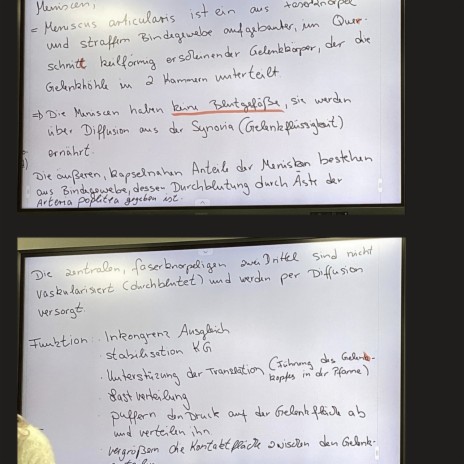 Menisken,
= Meniscus articularis ist ein aus Faserknorpel
und straffem Bindegewebe aufgebauter, im Quer-
schnitt keilförmig erscheinender Gelenkkörper, der die
Gelenkhöhle in 2 Kammern unterteilt.
⇒ Die Menisken haben keine Blutgefäße, sie werden
über Diffusion aus der Synovia (Gelenkflüssigkeit)
ernährt.
Die äußeren, kapselnahen Anteile der Menisken bestehen
aus Bindegewebe, dessen Durchblutung durch Äste der
Arteria poplitea gegeben ist.
Die zentralen, faserknorpeligen zwei Drittel sind nicht
vaskularisiert (durchblutet) und werden per Diffusion
versorgt.
Funktion: · Inkongrenz Ausgleich
· stabilisation KG
· Unterstüzung der Translation (Führung des Gelenk-
kopfes in der Pfanne)
· Lastverteilung
· puffern den Druck auf der Gelenkfläche ab
und verteilen ihn
· vergrößern die Kontaktfläche zwischen den Gelenk-